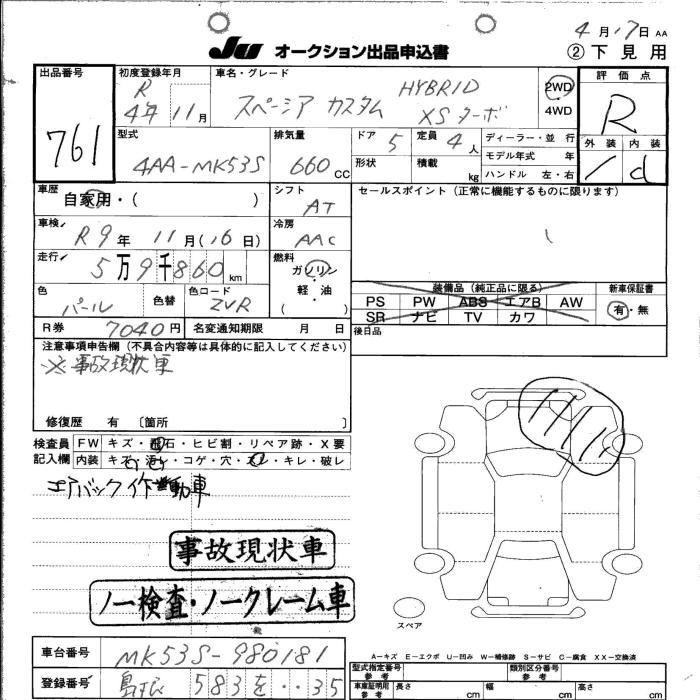 4月17日 AA
JU オークション出品申込書 ②下見用
出品番号 初度登録年月 車名・グレード 評価点
761 R 4年 11月 スペーシア カスタム HYBRID XSターボ 2WD 4WD R
型式 排気量 ドア 定員 ディーラー・並行 外装 内装
4AA-MK53S 660CC 5 4人 モデル年式 年 1 d
形状 積載 kg ハンドル 左・右
車歴 シフト セールスポイント(正常に機能するものに限ります)
自家用・( ) AT
車検 冷房
R9年 11月(16日) AAC
走行 燃料
5万9千860km ガソリン
軽・油
( )
色 色替 色コード
パール ZVR
装備品(純正品に限る) 新車保証書
PS PW ABS エアB AW 有・無
SR ナビ TV カワ
R券 7040円 名変通知期限 月 日 後日品
注意事項申告欄(不具合内容等は具体的に記入してください)
※事故現状車
修復歴 有〔箇所 〕
検査員 FW キズ・飛石・ヒビ割・リペア跡・X要
記入欄 内装 キズ・汚レ・コゲ・穴・スレ・キレ・破レ
エアバック作動車
事故現状車
ノー検査・ノークレーム車
スペア
A-キズ E-エクボ U-凹み W-補修跡 S-サビ C-腐食 XX-交換済
車台番号 MK53S-980181 型式指定番号 参考 類別区分番号 参考
登録番号 島根 583 を ‥35 車庫証明用 参考 長さ cm 幅 cm 高さ cm